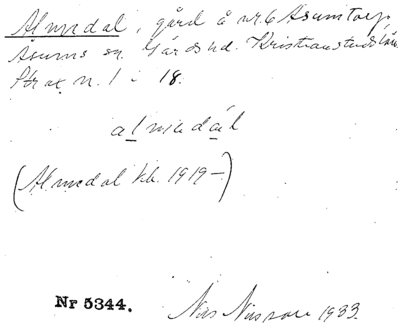 Almedal, gård å nr 6 Åsumtorp
Åsums sn. Gärds hd. Kristianstads län.
Str ax n. 1 - 18.
almədál
(Almedal kb. 1919 -)
Nr 5344.
Nils Nilsson 1933.